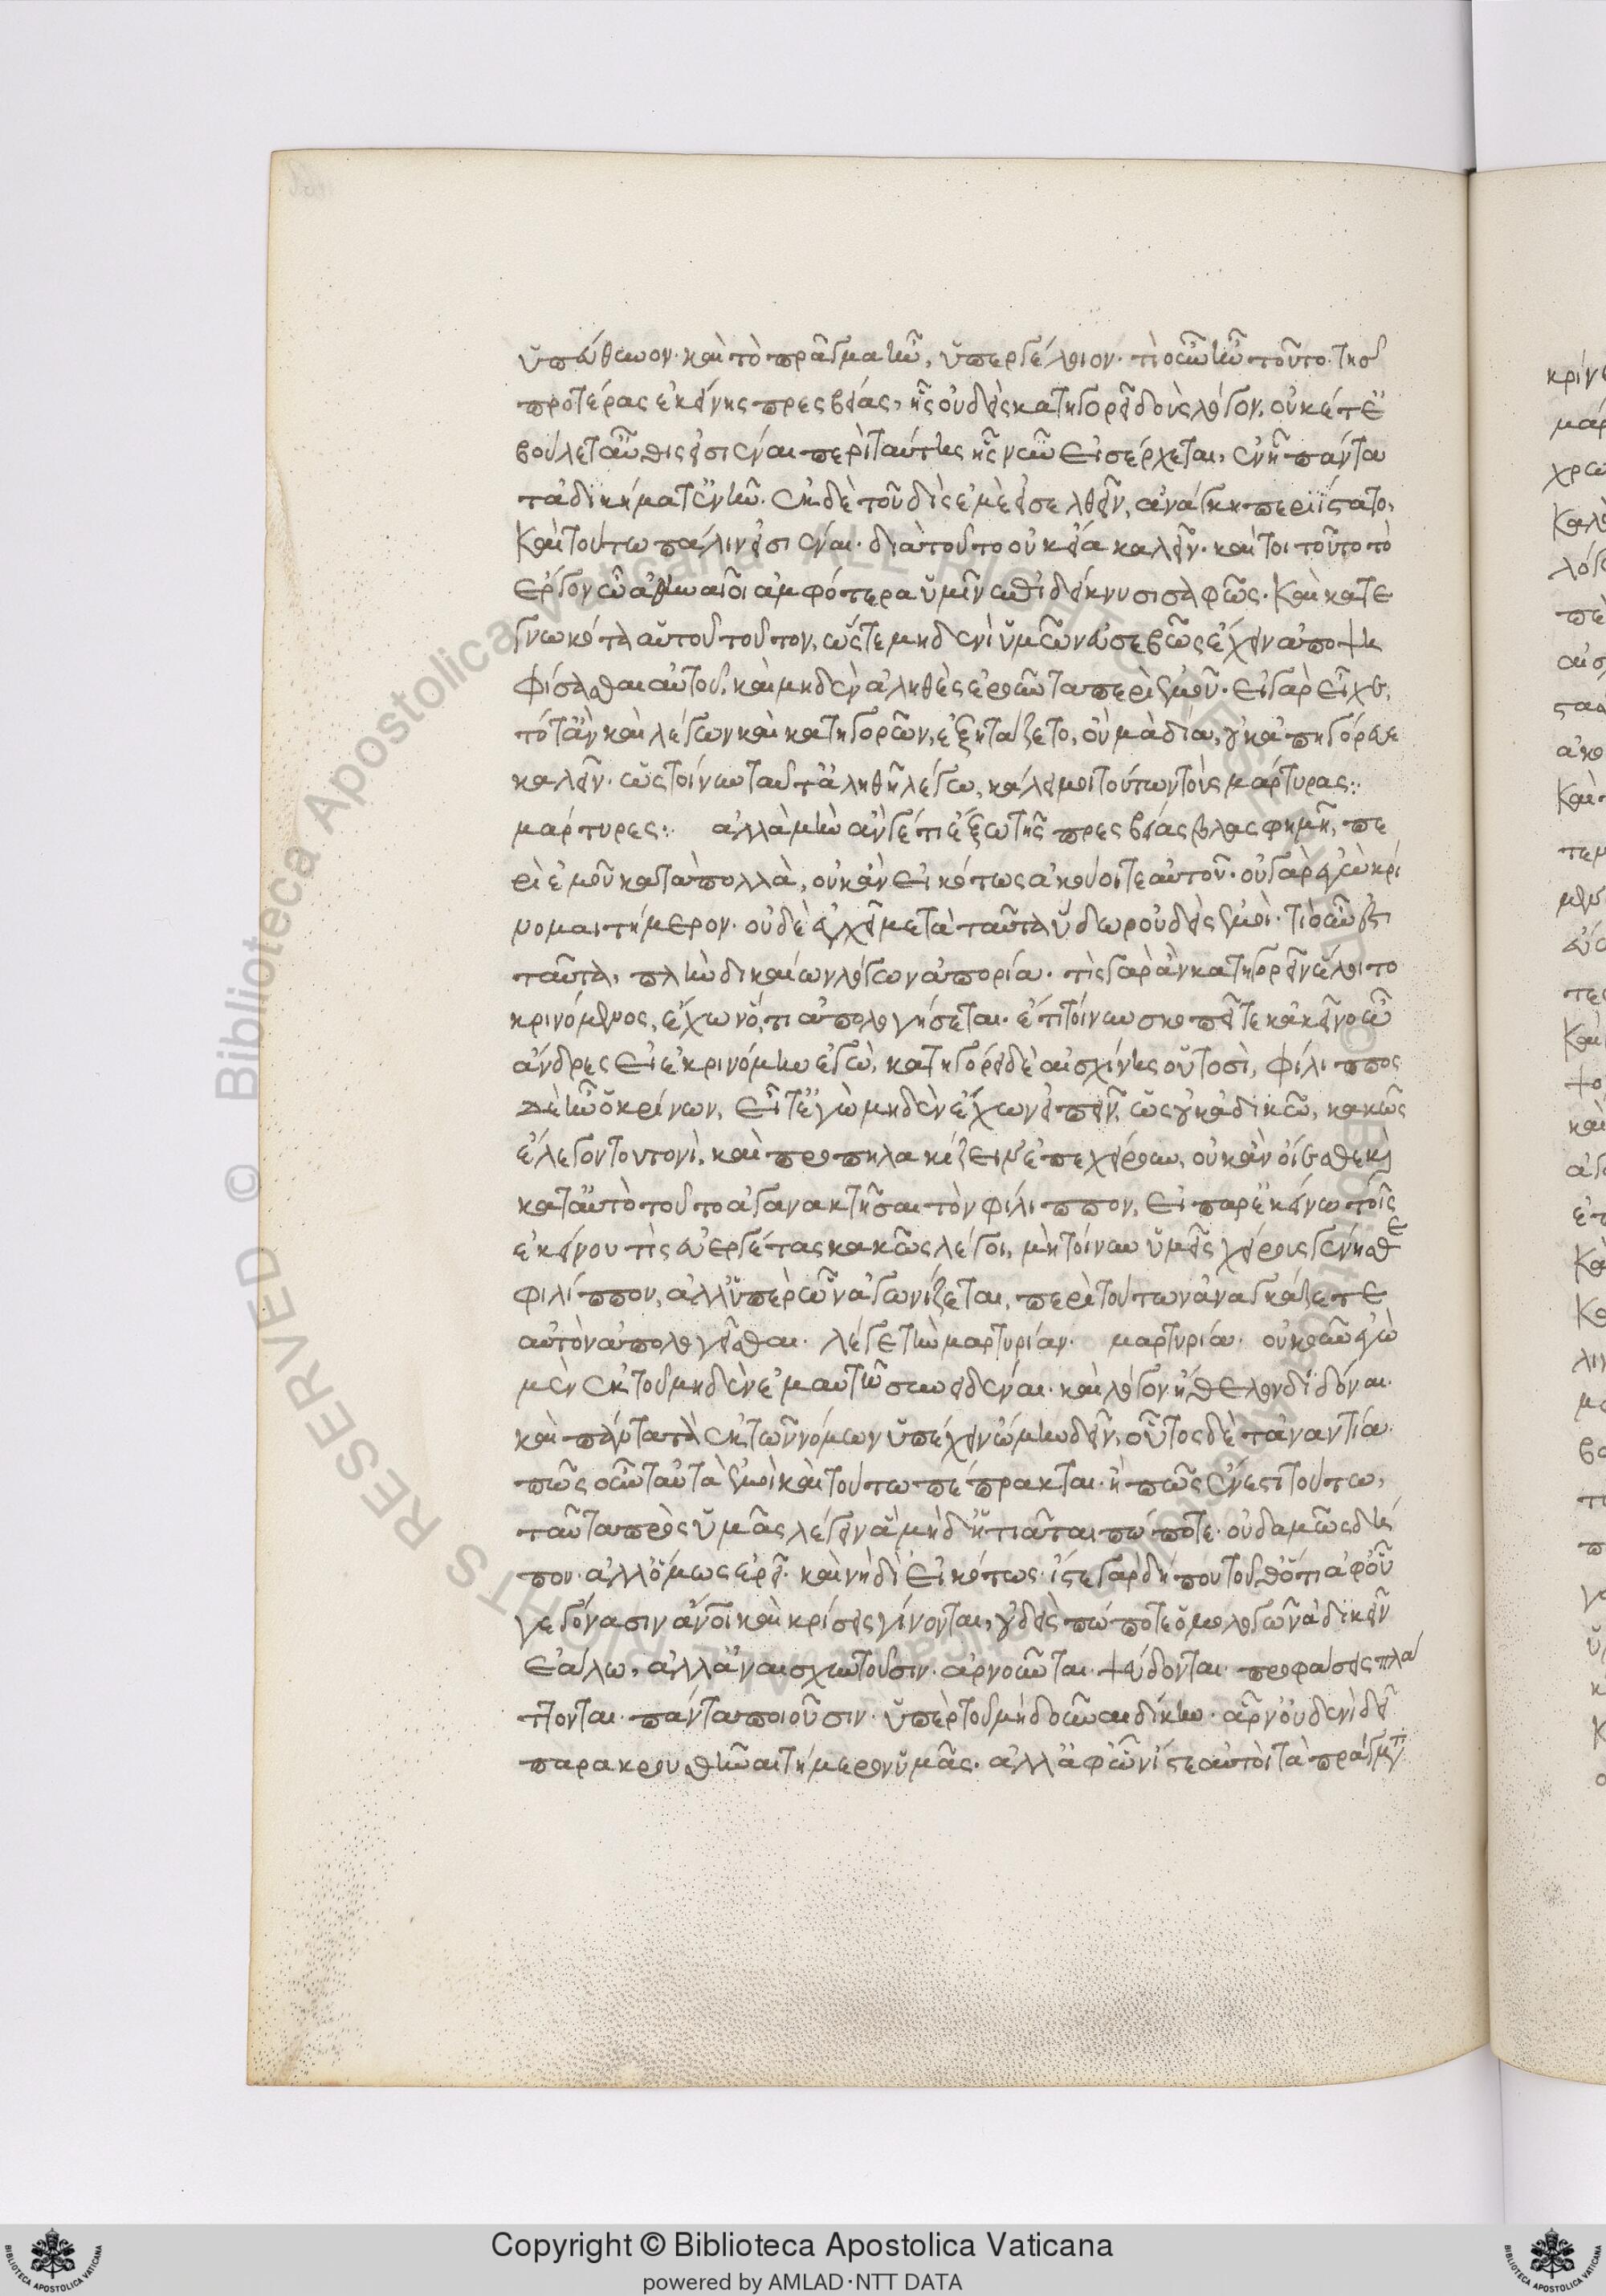 ὑπεύθυνον· καὶ τὸ πρᾶγμα ἦν, ὑπεργέλοιον. τί οὖν ἦν τοῦτο. τῆς
προτέρας ἐκείνης πρεσβείας, ἧς οὐδεὶς κατηγορεῖ δοὺς λόγον, οὐκέτ' ἐ
βούλετ' αὖθις εἰσιέναι περὶ ταύτης ἧς νῦν εἰσέρχεται, ἐν ᾗ πάντα
τἀδικήματ' ἐνῆν. ἐκ δὲ τοῦ δὶς ἐμὲ εἰσελθεῖν, ἀνάγκη περιΐστατο,
καὶ τούτω πάλιν εἰσιέναι· διὰ τοῦτο οὐκ εἴα καλεῖν. καίτοι τοῦτο τὸ
ἔργον ὦ ἄνδρες ἀθηναῖοι ἀμφότερα ὑμῖν ἐπιδείκνυσι σαφῶς. καὶ κατε
γνωκότα αὑτοῦ τοῦτον, ὥστε μηδενὶ ὑμῶν εὐσεβῶς ἔχειν ἀποψη
φίσασθαι αὐτοῦ, καὶ μηδὲν ἀληθὲς ἐροῦντα περὶ ἐμοῦ. εἰ γὰρ εἶχεν,
τότ' ἂν καὶ λέγων καὶ κατηγορῶν, ἐξητάζετο, οὐ μὰ δία, οὐκ ἀπηγόρευε
καλεῖν. ὡς τοίνυν ταῦτ' ἀληθῆ λέγω, κάλει μοι τούτων τοὺς μάρτυρας:
μάρτυρες: ἀλλὰ μὴν ἄν γέ τι ἔξω τῆς πρεσβείας βλασφημῆ, πε
ρὶ ἐμοῦ κατὰ πολλὰ, οὐκ ἂν εἰκότως ἀκούοιτε αὐτοῦ. οὐ γὰρ ἐγὼ κρί
νομαι τήμερον. οὐδὲ ἐγχεῖ μετὰ ταῦτα ὕδωρ οὐδεὶς ἐμοὶ. τί οὖν ἐστι
ταῦτα, πλὴν δικαίων λόγων ἀπορία. τίς γὰρ ἂν κατηγορεῖν ἕλοιτο
κρινόμενος, ἔχων ὅ,τι ἀπολογήσεται. ἔτι τοίνυν σκοπεῖτε κἀκεῖνο ὦ
ἄνδρες εἰ ἐκρινόμην ἐγὼ, κατηγόρει δὲ αἰσχίνης οὑτοσὶ, φίλιππος
δὲ ἦν ὁ κρίνων, εἶτ' ἐγὼ μηδὲν ἔχων εἰπεῖν, ὡς οὐκ ἀδικῶ, κακῶς
ἔλεγον τουτονὶ, καὶ προπηλακίζειν ἐπεχείρουν, οὐκ ἂν οἴεσθε καὶ
κατ' αὐτὸ τοῦτο ἀγανακτῆσαι τὸν φίλιππον, εἰ παρ' ἐκείνω τοῖς
ἐκείνου τις εὐεργέτας κακῶς λέγοι, μὴ τοίνυν ὑμεῖς χείρους γένησθε
φιλίππου, ἀλλ' ὑπὲρ ὧν ἀγωνίζεται, περὶ τούτων ἀναγκάζετε
αὐτὸν ἀπολογεῖσθαι. λέγε τὴν μαρτυρίαν. μαρτυρία. οὐκοῦν ἐγὼ
μὲν ἐκ τοῦ μηδὲν ἐμαυτῶ συνειδέναι. καὶ λόγον ἤθελον διδόναι.
καὶ πάντα τὰ ἐκ τῶν νόμων ὑπέχειν ᾤμην δεῖν, οὗτος δὲ τἀναντία.
πῶς οὖν ταὐτὰ ἐμοὶ καὶ τούτω πέπρακται. ἢ πῶς ἔνεστι τούτω,
ταῦτα πρὸς ὑμᾶς λέγειν ἃ μὴδ' ἠτιᾶται πώποτε. οὐδαμῶς δή
που. ἀλλ' ὅμως ἐρεῖ. καὶ νὴ δί' εἰκότως. ἴστε γὰρ δήπου τοῦθ' ὅτι ἀφ' οὗ
γεγόνασιν ἄνθρωποι καὶ κρίσεις γίνονται, οὐδεὶς πώποτε ὁμολογῶν ἀδικεῖν
ἑάλω, ἀλλ' ἀναισχυντοῦσιν. ἀρνοῦνται. ψεύδονται. προφάσεις πλά
ττονται. πάντα ποιοῦσιν. ὑπὲρ τοῦ μὴ δοῦναι δίκην. ὧν οὐδενὶ δεῖ
παρακρουσθῆναι τήμερον ὑμᾶς. ἀλλ' ἀφ' ὧν ἴστε αὐτοὶ τὰ πράγματ